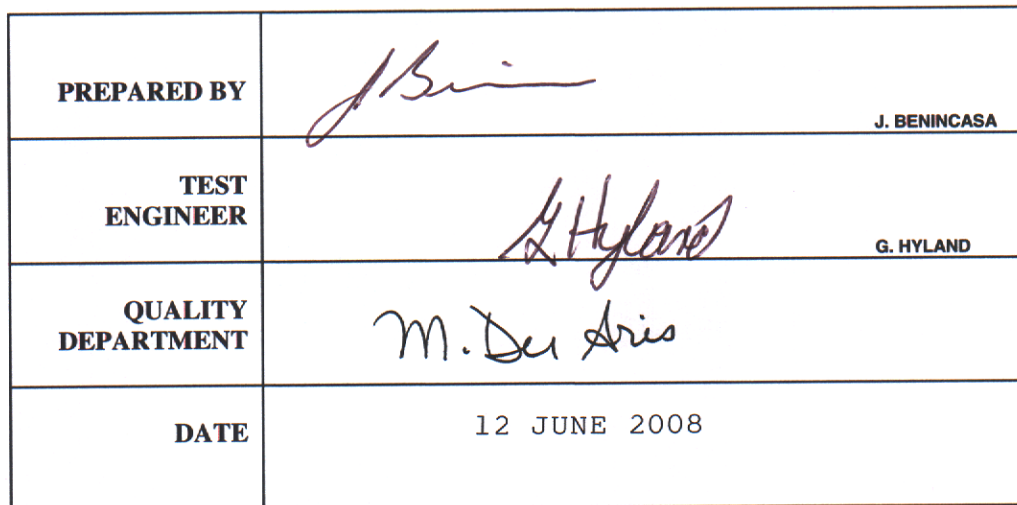 PREPARED BY
J. BENINCASA
TEST
ENGINEER
G Hyland
G. HYLAND
QUALITY
DEPARTMENT
M. Der Aris
DATE
12 JUNE 2008